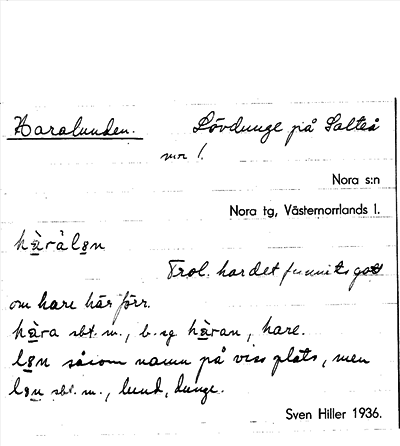 Haralunden. Lövdunge på Salteå
nr 1.
Nora s:n
Nora tg, Västernorrlands l.
hàrálən
Trol. har det funnits gott
om hare här förr.
hàra sbt. m., b. sg hàran, hare.
lən såsom namn på viss plats, men
lən sbt. m., lund, dunge.
Sven Hiller 1936.